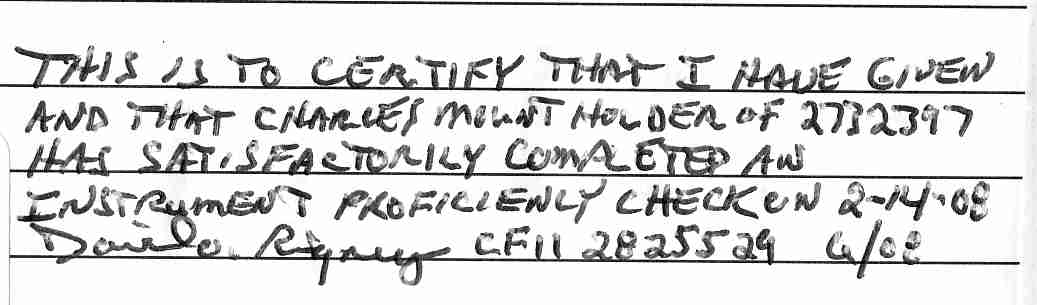 THIS IS TO CERTIFY THAT I HAVE GIVEN
AND THAT CHARLES MOUNT HOLDER OF 2732397
HAS SATISFACTORILY COMPLETED AN
INSTRUMENT PROFICIENCY CHECK ON 2-14-08
CFII 2825529 6/08